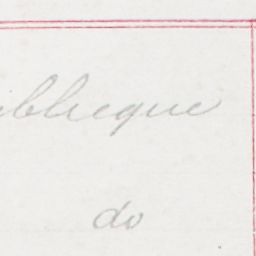 iblieque
do